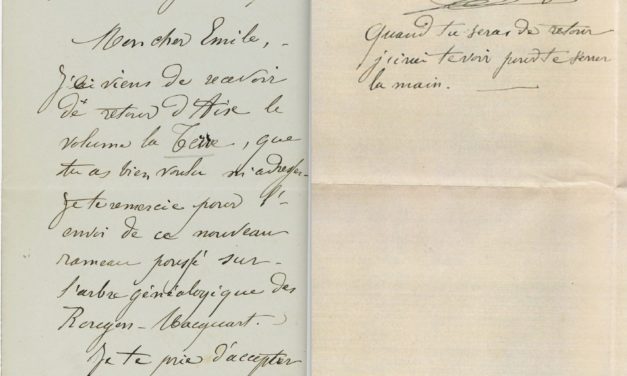 Mon cher Emile,
Je viens de recevoir
de retour d'Aix le
volume la Terre, que
tu as bien voulu m'adresser.
Je te remercie pour l'
envoi de ce nouveau
rameau poussé sur
l'arbre généalogique des
Rougon-Macquart.
Je te prie d'accepter
Quand tu seras de retour
j'irai te voir pour te serrer
la main.